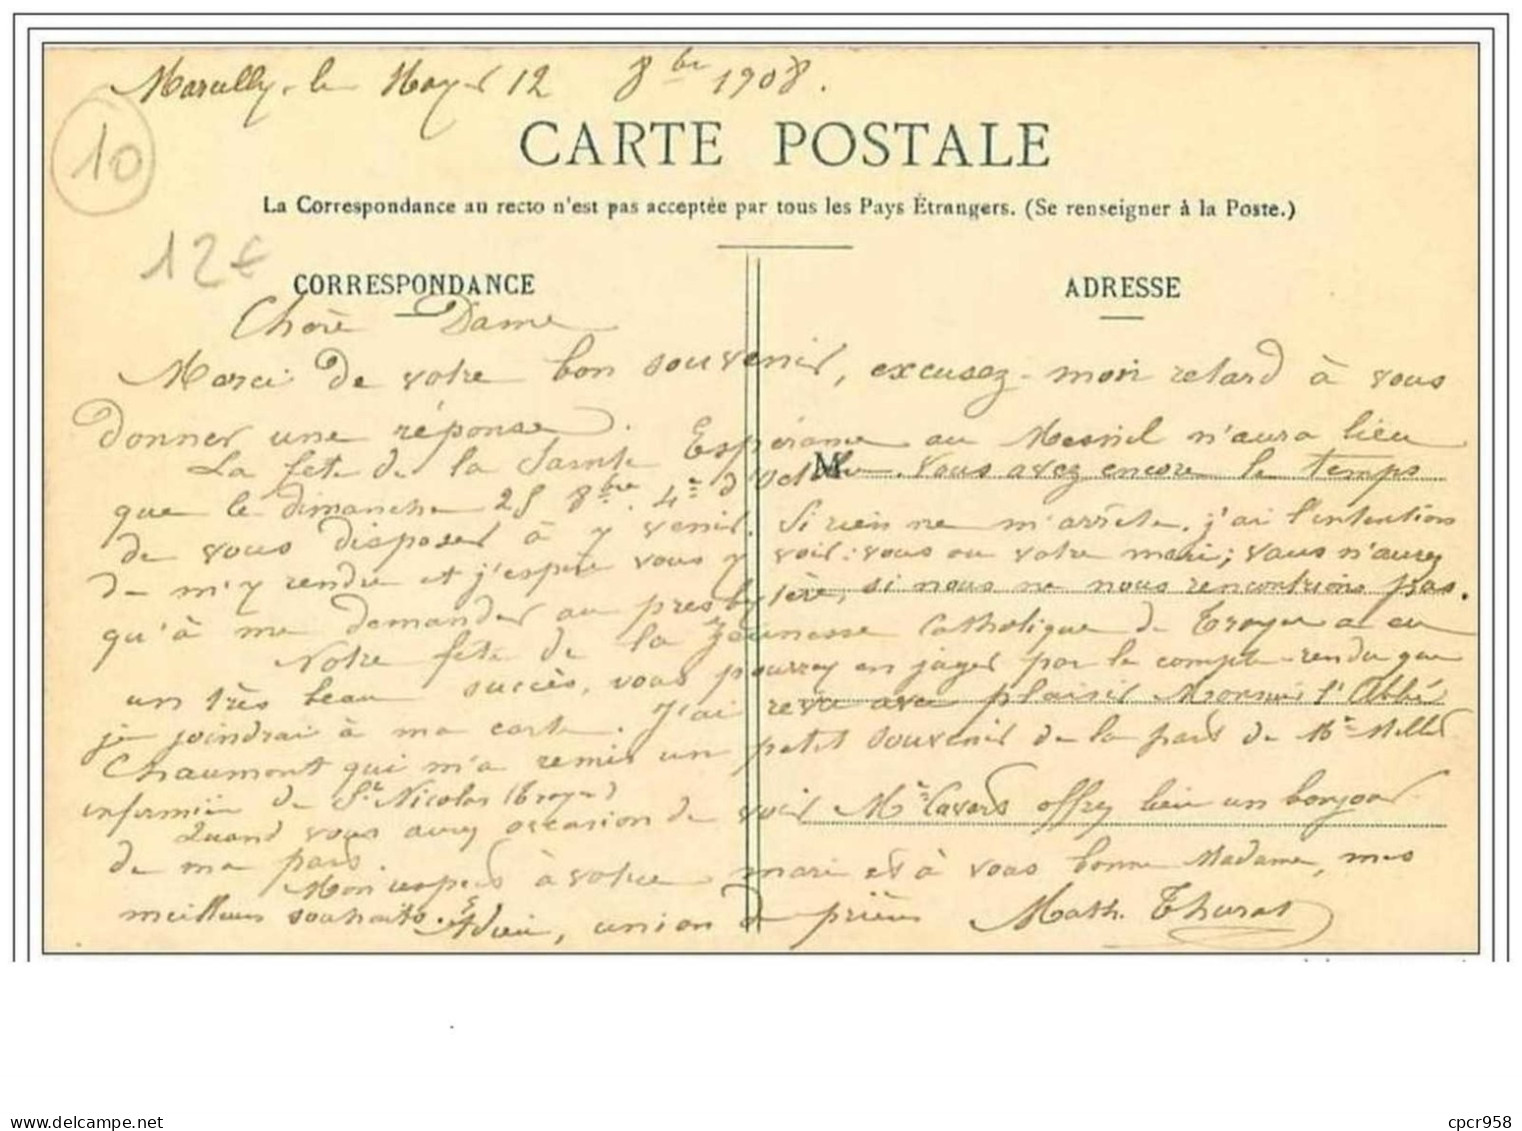 Marcilly-le-Hayer 12 8bre 1908.
10
CARTE POSTALE
La Correspondance au recto n'est pas acceptée par tous les Pays Étrangers. (Se renseigner à la Poste.)
12€
CORRESPONDANCE
ADRESSE
Chère Dame
Merci de votre bon souvenir, excusez-moi retard à vous
donner une réponse.
La fête de la Sainte Espérance au Mesnil n'aura lieu
que le dimanche 25 8bre. 4e d'Octobre. Vous avez encore le temps
M
de vous disposer à y venir. Si rien ne m'arrête, j'ai l'intention
de m'y rendre et j'espère vous y voir: vous ou votre mari; vous n'aurez
qu'à me demander au presbytère, si nous ne nous rencontrions pas.
Notre fête de la Jeunesse Catholique de Troyes a eu
un très beau succès, vous pourrez en juger par le compte-rendu que
je joindrai à ma carte. J'ai revu avec plaisir Monsieur l'Abbé
Chaumont qui m'a remis un petit souvenir de la part de
de St Nicolas (Troyes)
Quand vous aurez occasion de voir offrez lui un bonjour
de ma part.
Mon respect à votre mari et à vous bonne Madame, mes
meilleurs souhaits. Adieu, union de prières Math. Thurat
cpcr958